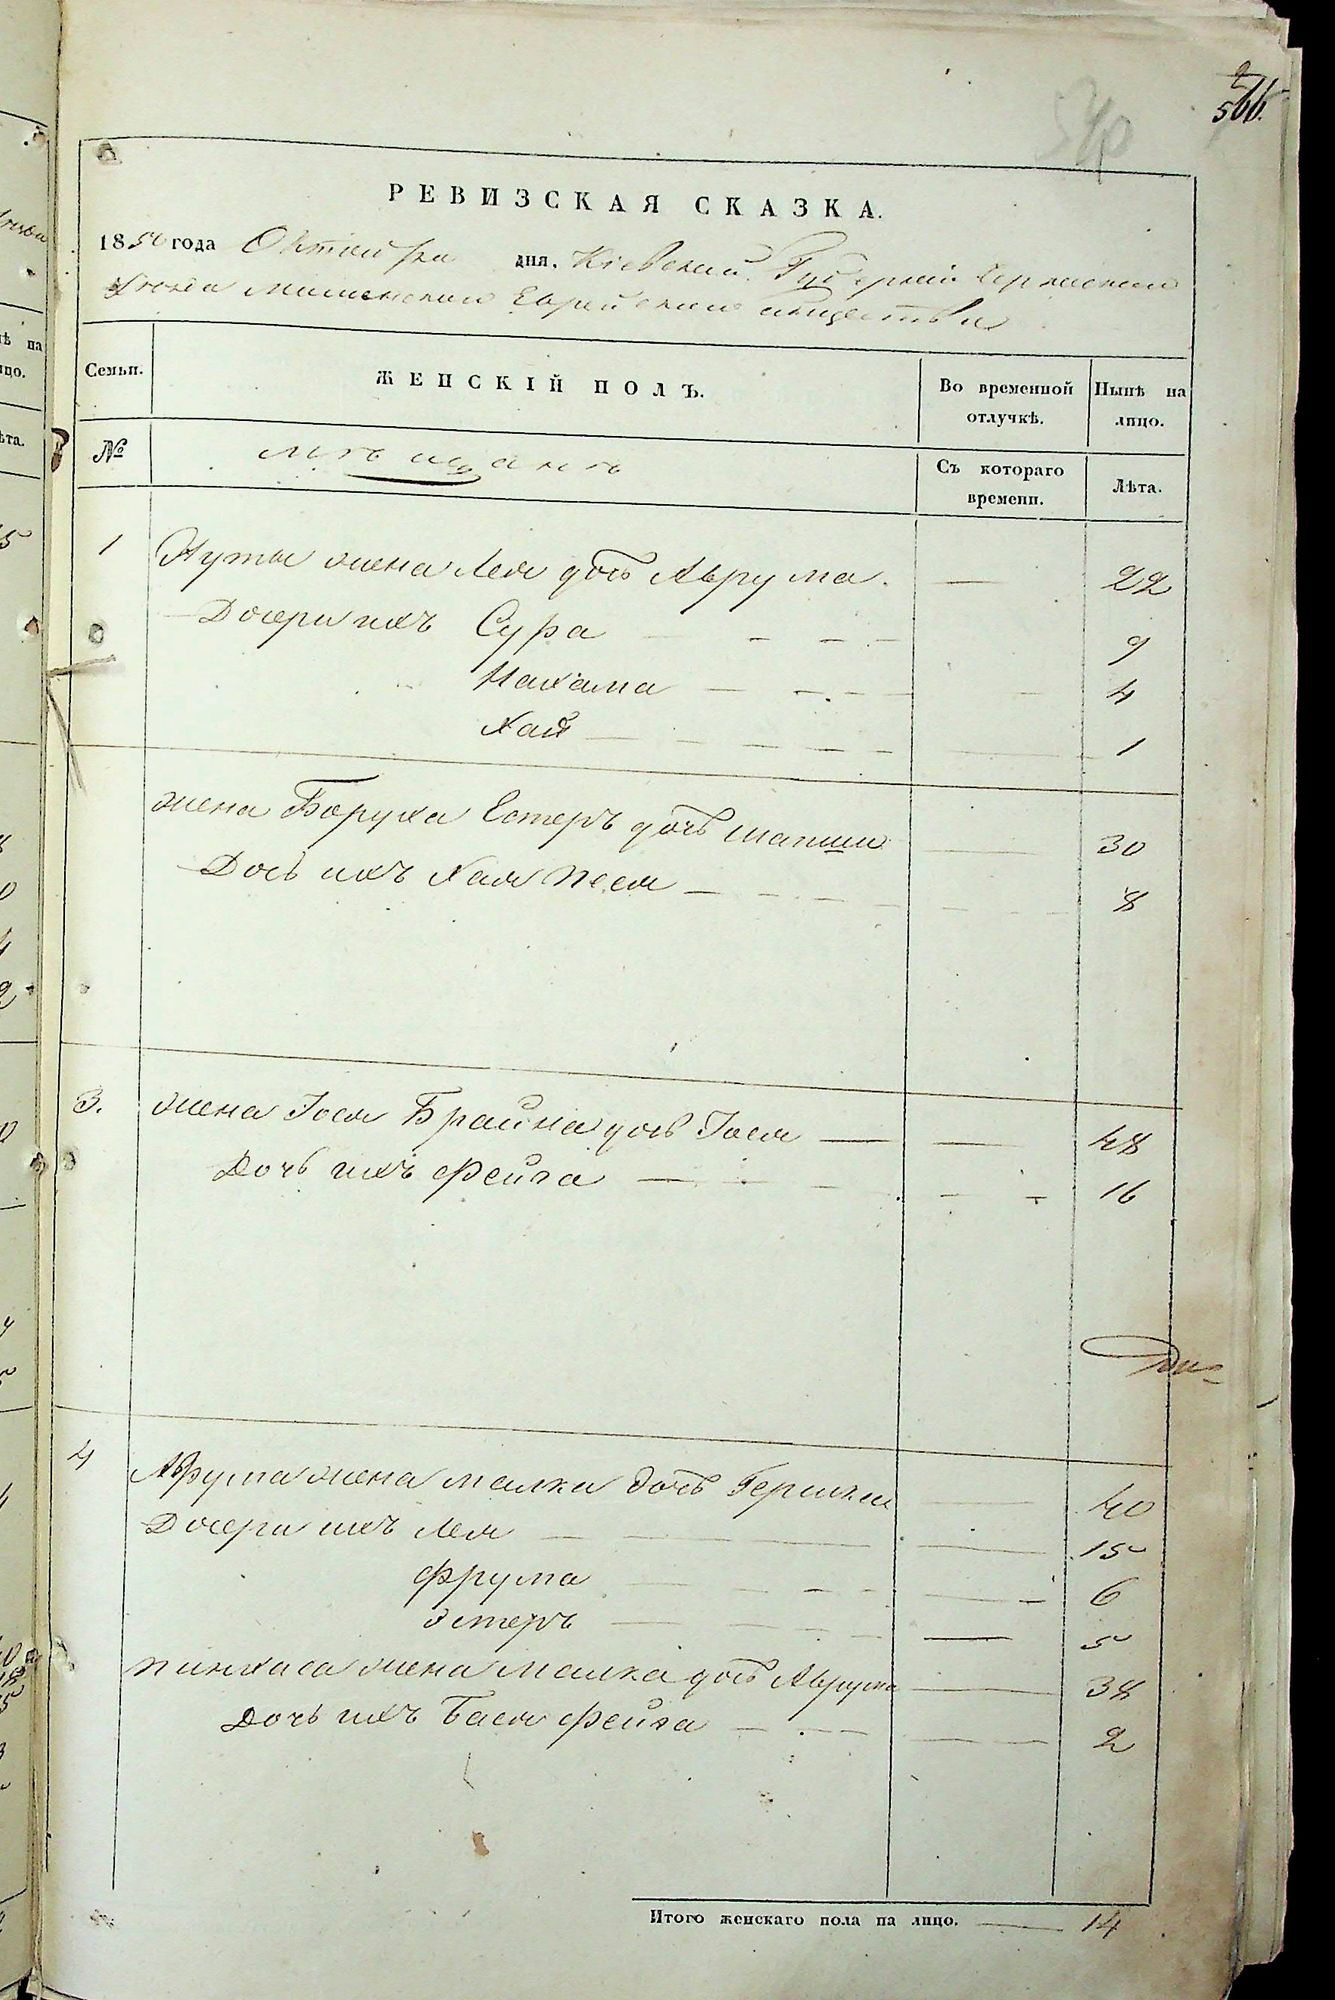 566.
540
РЕВИЗСКАЯ СКАЗКА.
1850 года Октября дня. Кіевской Губерніи Черкаскаго
уѣзда Еврейскаго общества
Семьи.
ЖЕНСКІЙ ПОЛЪ.
Во временной отлучкѣ.
Нынѣ на лицо.
№
мѣщанъ
Съ котораго времени.
Лѣта.
1 Нуты жена Лея дочь Аврума. — 22
Дочери ихъ Сура — 9
Нахама — 4
Хая — 1
жена Боруха Естеръ дочь — 30
Дочь ихъ Хая Песя — 8
3. жена Іося Брайна дочь Іося — 48
Дочь ихъ Фейга — 16
4 Аврума жена Малка дочь Гершки — 40
Дочери ихъ Лея — 15
Фрума — 6
Эстеръ — 5
Пинхаса жена Малка дочь Аврума — 38
Дочь ихъ Бася Фейга — 2
Итого женскаго пола на лицо. — 14